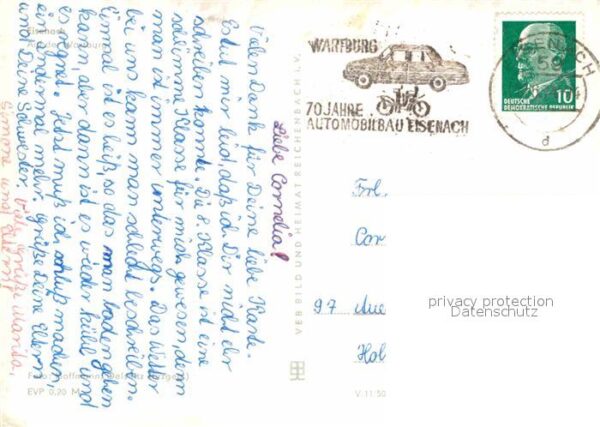 Eisenach
Liebe Cornelia!
Vielen Dank für Deine liebe Karte.
Es tut mir leid, daß ich Dir nicht eher
schreiben konnte. Die 8. Klasse ist eine
schlimme Klasse für mich gewesen denn
man ist immer unterwegs. Das Wetter
bei uns kann man schlecht beschreiben.
Einmal ist es heiß, so das man baden gehen
kann, aber dann ist es wieder kühl und
es regnet. Jetzt muß ich schluß machen,
ein andermal mehr. Grüße Deine Eltern
und Deine Schwester. Viele Grüße
Simone und
EVP 0,20 M
VEB BILD UND HEIMAT REICHENBACH i. V.
V 11 50
WARTBURG
70 JAHRE
AUTOMOBILBAU EISENACH
EISENACH
59
d
10
DEUTSCHE
DEMOKRATISCHE REPUBLIK
Frl.
Cor
97 Aue
Hol
privacy protection
Datenschutz